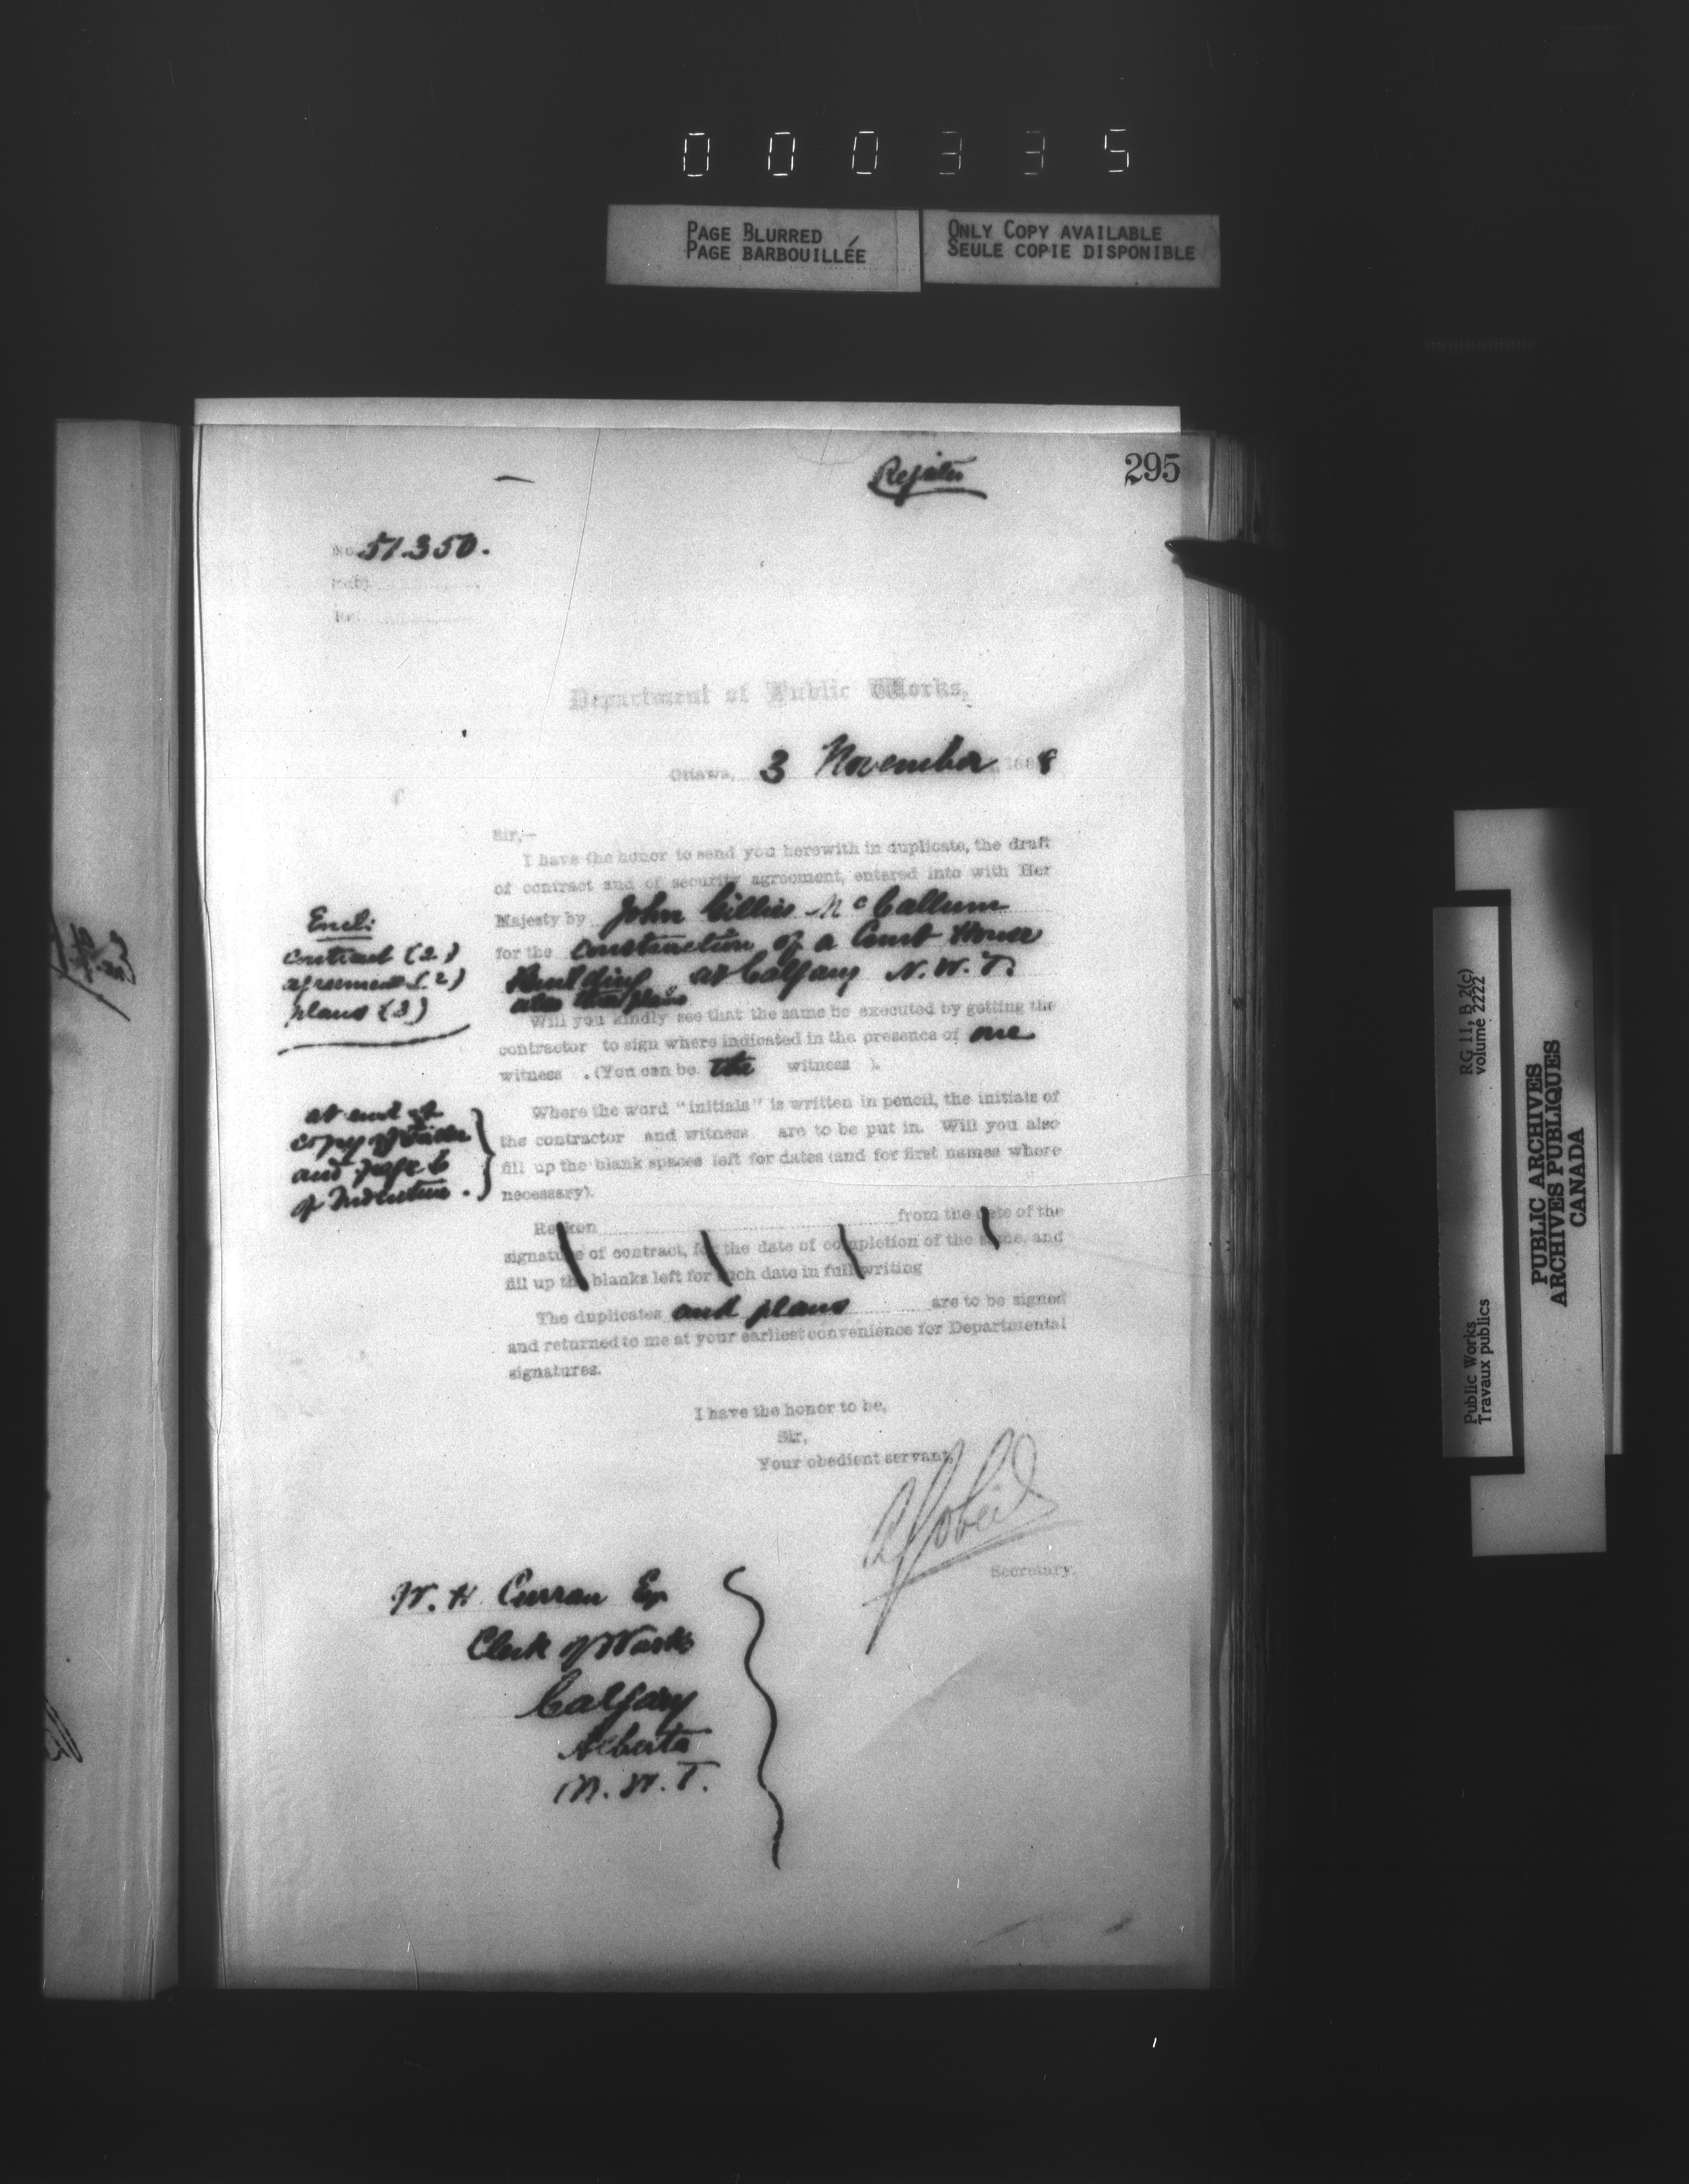 000335
PAGE BLURRED
PAGE BARBOUILLÉE
ONLY COPY AVAILABLE
SEULE COPIE DISPONIBLE
Register
295
No. 51.350.
Subj.
Ref.
Department of Public Works,
Ottawa, 3 November 1888
Sir,—
I have the honor to send you herewith in duplicate, the draft
of contract and of security agreement, entered into with Her
Majesty by John Gillies McCallum
for the construction of a Court House
Building at Calgary N.W.T.
also the plans
Encl:
contract (2)
agreement (2)
plans (3)
Will you kindly see that the same be executed by getting the
contractor to sign where indicated in the presence of one
witness . (You can be the witness ).
Where the word "initials" is written in pencil, the initials of
the contractor and witness are to be put in. Will you also
fill up the blank spaces left for dates (and for first names where
necessary).
at end of
copy of Tender
and page 6
of Indenture.
Reckon from the date of the
signature of contract, for the date of completion of the same, and
fill up the blanks left for such date in full writing
The duplicates and plans are to be signed
and returned to me at your earliest convenience for Departmental
signatures.
I have the honor to be,
Sir,
Your obedient servant,
A Gobeil
Secretary.
W. H. Curran Esq
Clerk of Works
Calgary
Alberta
N.W.T.
Public Works
Travaux publics
RG 11, B 2(c)
volume 2222
PUBLIC ARCHIVES
ARCHIVES PUBLIQUES
CANADA